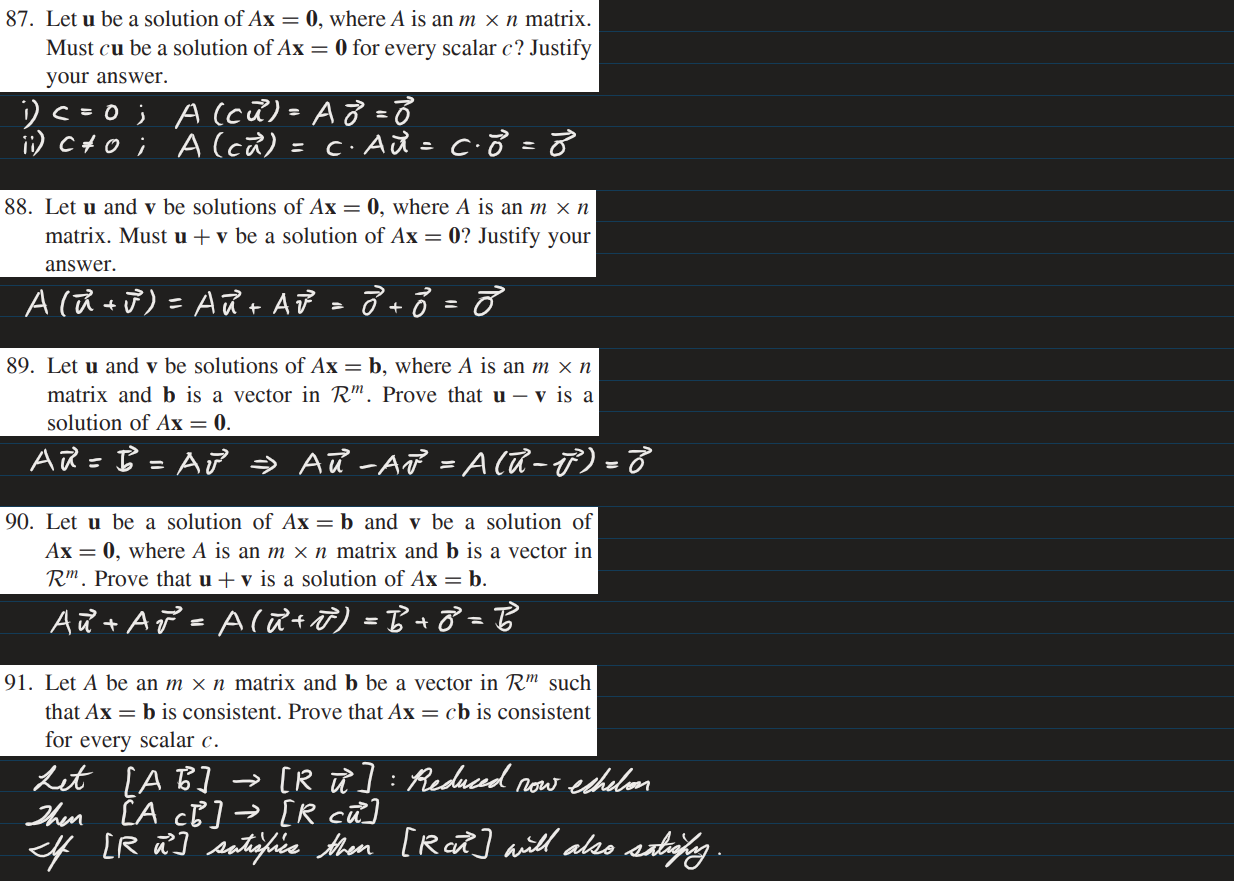 87. Let u be a solution of Ax = 0, where A is an m × n matrix.
Must cu be a solution of Ax = 0 for every scalar c? Justify
your answer.
i) c = 0 ; A (cu⃗) = A 0⃗ = 0⃗
ii) c ≠ 0 ; A (cu⃗) = c · Au⃗ = c · 0⃗ = 0⃗
88. Let u and v be solutions of Ax = 0, where A is an m × n
matrix. Must u + v be a solution of Ax = 0? Justify your
answer.
A (u⃗ + v⃗) = Au⃗ + Av⃗ = 0⃗ + 0⃗ = 0⃗
89. Let u and v be solutions of Ax = b, where A is an m × n
matrix and b is a vector in ℛᵐ. Prove that u − v is a
solution of Ax = 0.
Au⃗ = b⃗ = Av⃗ ⇒ Au⃗ − Av⃗ = A(u⃗ − v⃗) = 0⃗
90. Let u be a solution of Ax = b and v be a solution of
Ax = 0, where A is an m × n matrix and b is a vector in
ℛᵐ. Prove that u + v is a solution of Ax = b.
Au⃗ + Av⃗ = A(u⃗ + v⃗) = b⃗ + 0⃗ = b⃗
91. Let A be an m × n matrix and b be a vector in ℛᵐ such
that Ax = b is consistent. Prove that Ax = cb is consistent
for every scalar c.
Let [A b⃗] → [R u⃗] : Reduced row echelon
Then [A cb⃗] → [R cu⃗]
If [R u⃗] satisfies then [R cu⃗] will also satisfy.